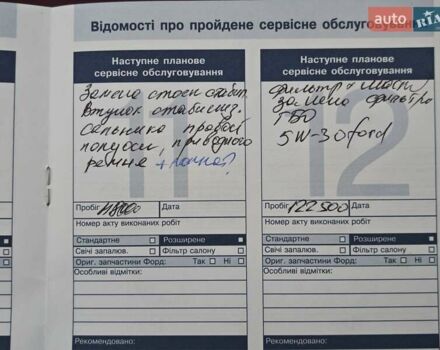 Відомості про пройдене сервісне обслуговування
auto RIA
Наступне планове
сервісне обслуговування
Замена стоек стаб
Втулок стабилиз.
Сальника правой
полуоси, приводного
ремня + помпа?
11
Пробіг Дата
Номер акту виконаних робіт
Стандартне Розширене
Свічі запалюв. Фільтр салону
Ориг. запчастини Форд: Так Ні
Особливі відмітки:
Рекомендовано:
Наступне планове
сервісне обслуговування
фильтр + масл
замена фильтра
ГБО
5W-30 ford
12
Пробіг 122500 Дата
Номер акту виконаних робіт
Стандартне Розширене
Свічі запалюв. Фільтр салону
Ориг. запчастини Форд: Так Ні
Особливі відмітки:
Рекомендовано: